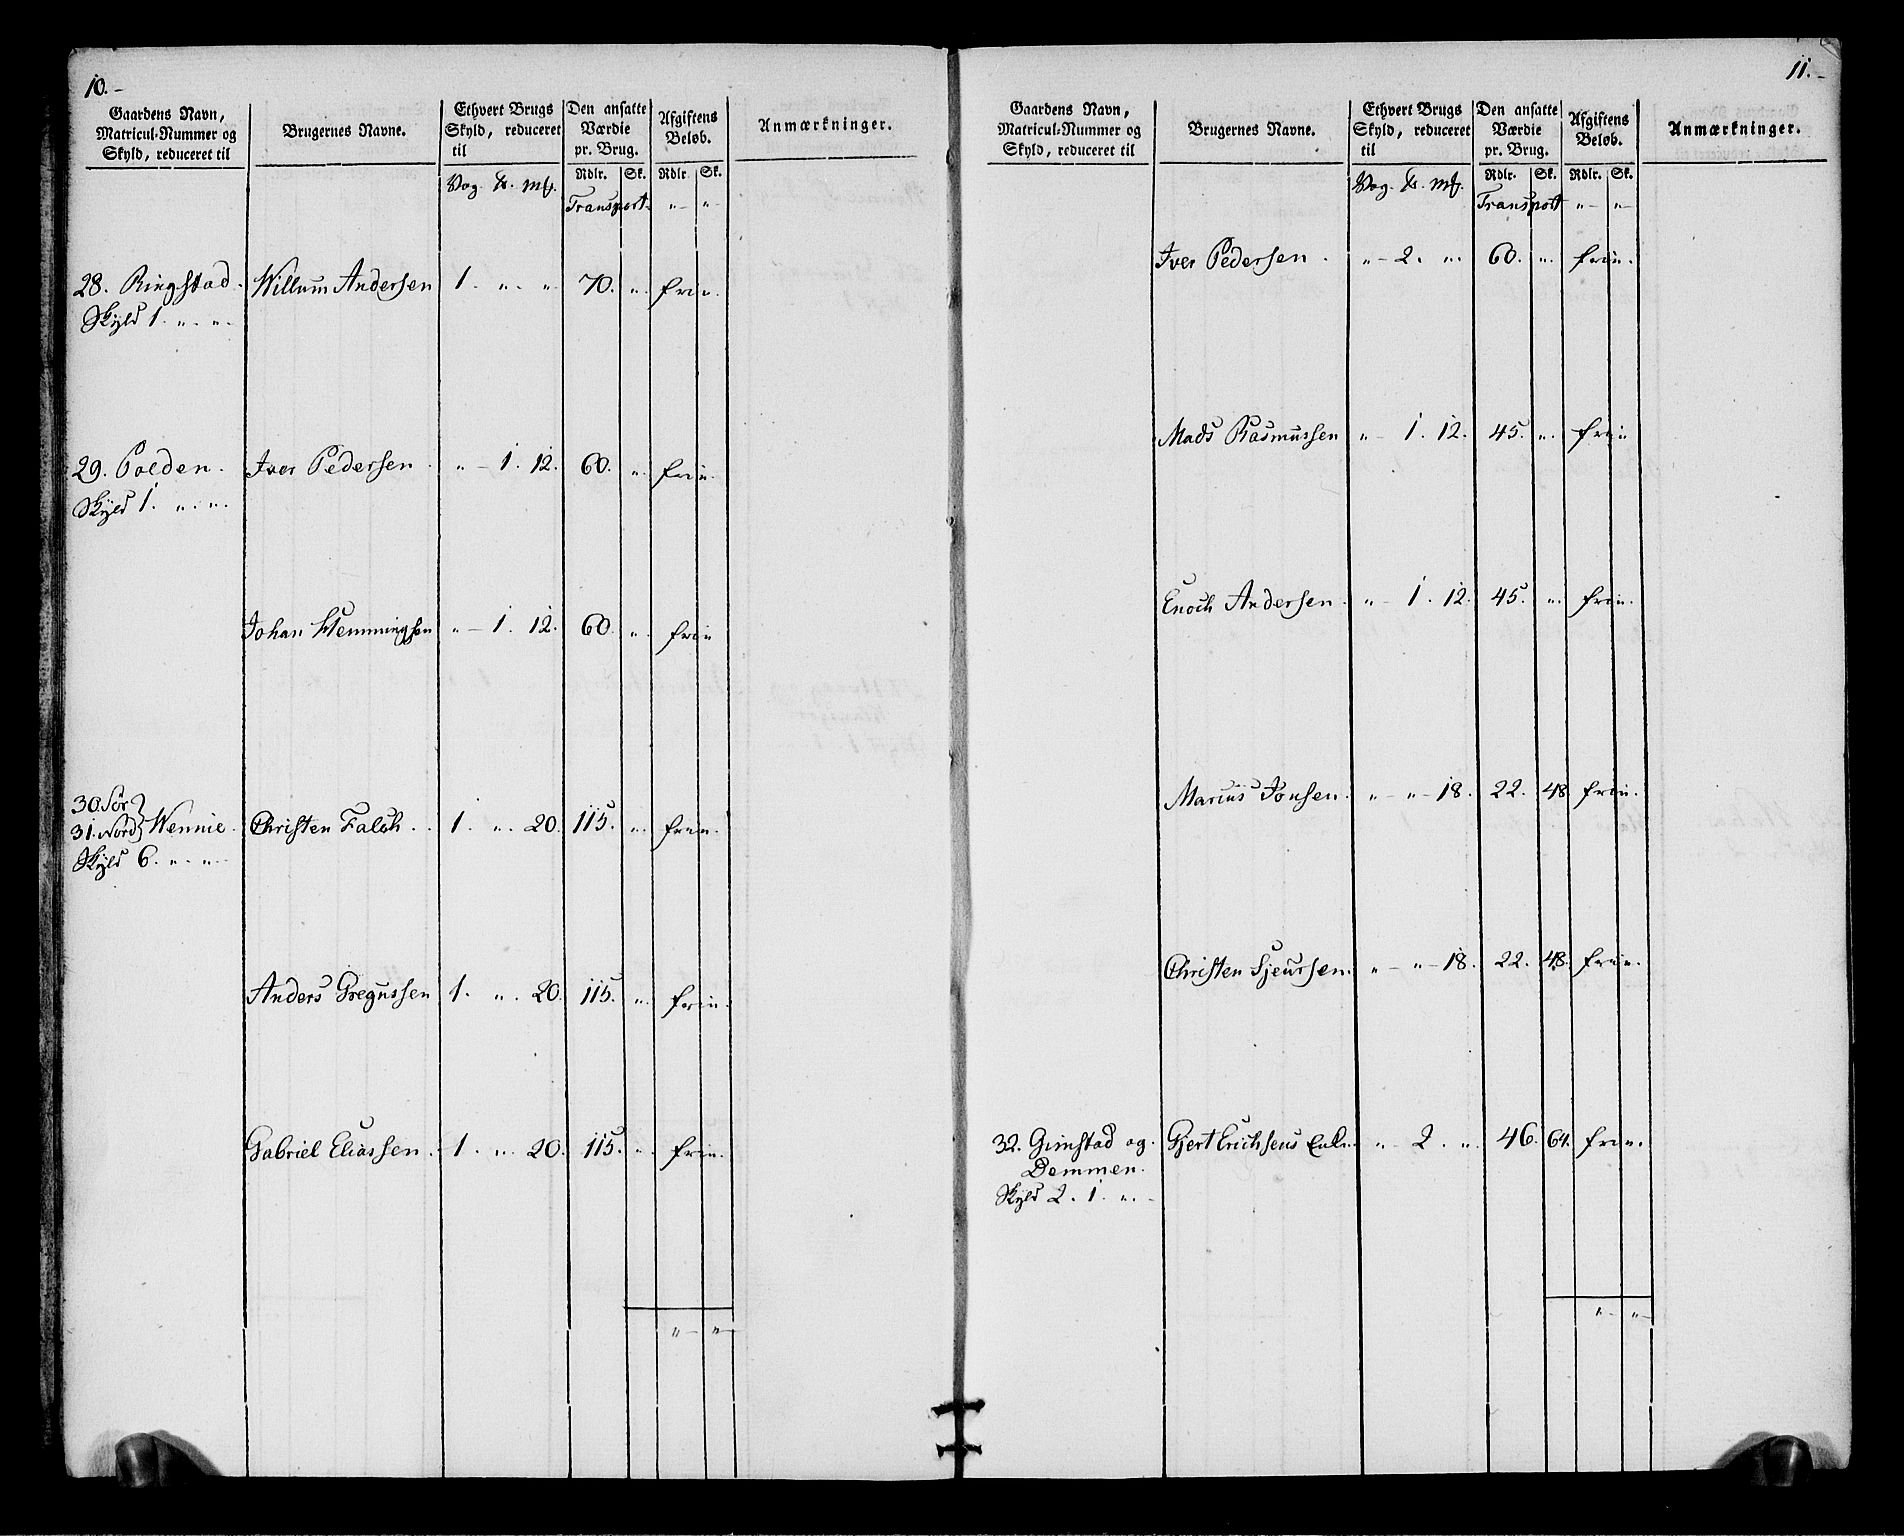 10.-
Gaardens Navn, Matricul-Nummer og Skyld, reduceret til
Brugernes Navne.
Ethvert Brugs Skyld, reduceret til
Den ansatte Værdie pr. Brug.
Afgiftens Beløb.
Anmærkninger.
Vog. ℔. mk. Rdlr. Sk. Rdlr. Sk.
Transport. " - " -
28. Ringstad. Willum Andersen 1. " . " 70. " . frie.
Skyld 1. " . " .
29. Polden. Iver Pedersen. " - 1. 12. 60. " . frie.
Skyld 1. " . " .
Johan Hemmingsen " - 1. 12. 60. " . frie
30. Sør
31. Nord Wennie. Christen Falch. 1. " . 20. 115. " . frie.
Skyld 6. " . " .
Anders Gregussen 1. " . 20. 115. " . frie.
Gabriel Eliassen. 1. " . 20. 115. " . frie.
" - " -
11.-
Gaardens Navn, Matricul-Nummer og Skyld, reduceret til
Brugernes Navne.
Ethvert Brugs Skyld, reduceret til
Den ansatte Værdie pr. Brug.
Afgiftens Beløb.
Anmærkninger.
Vog. ℔. mk. Rdlr. Sk. Rdlr. Sk.
Transport " - " -
Iver Pedersen. " - 2. " . 60. " . frie.
Mads Rasmussen " - 1. 12. 45. " . frie
Enoch Andersen. " - 1. 12. 45. " . frie.
Marius Jonsen. " - " - 18. 22. 48 frie.
Christen Sjeursen. " - " - 18. 22. 48. frie.
32. Grimstad og Gjert Erichsens Enke. " - 2. " . 46. 64. frie.
Demmen.
Skyld 2. 1. " . -
" - " -